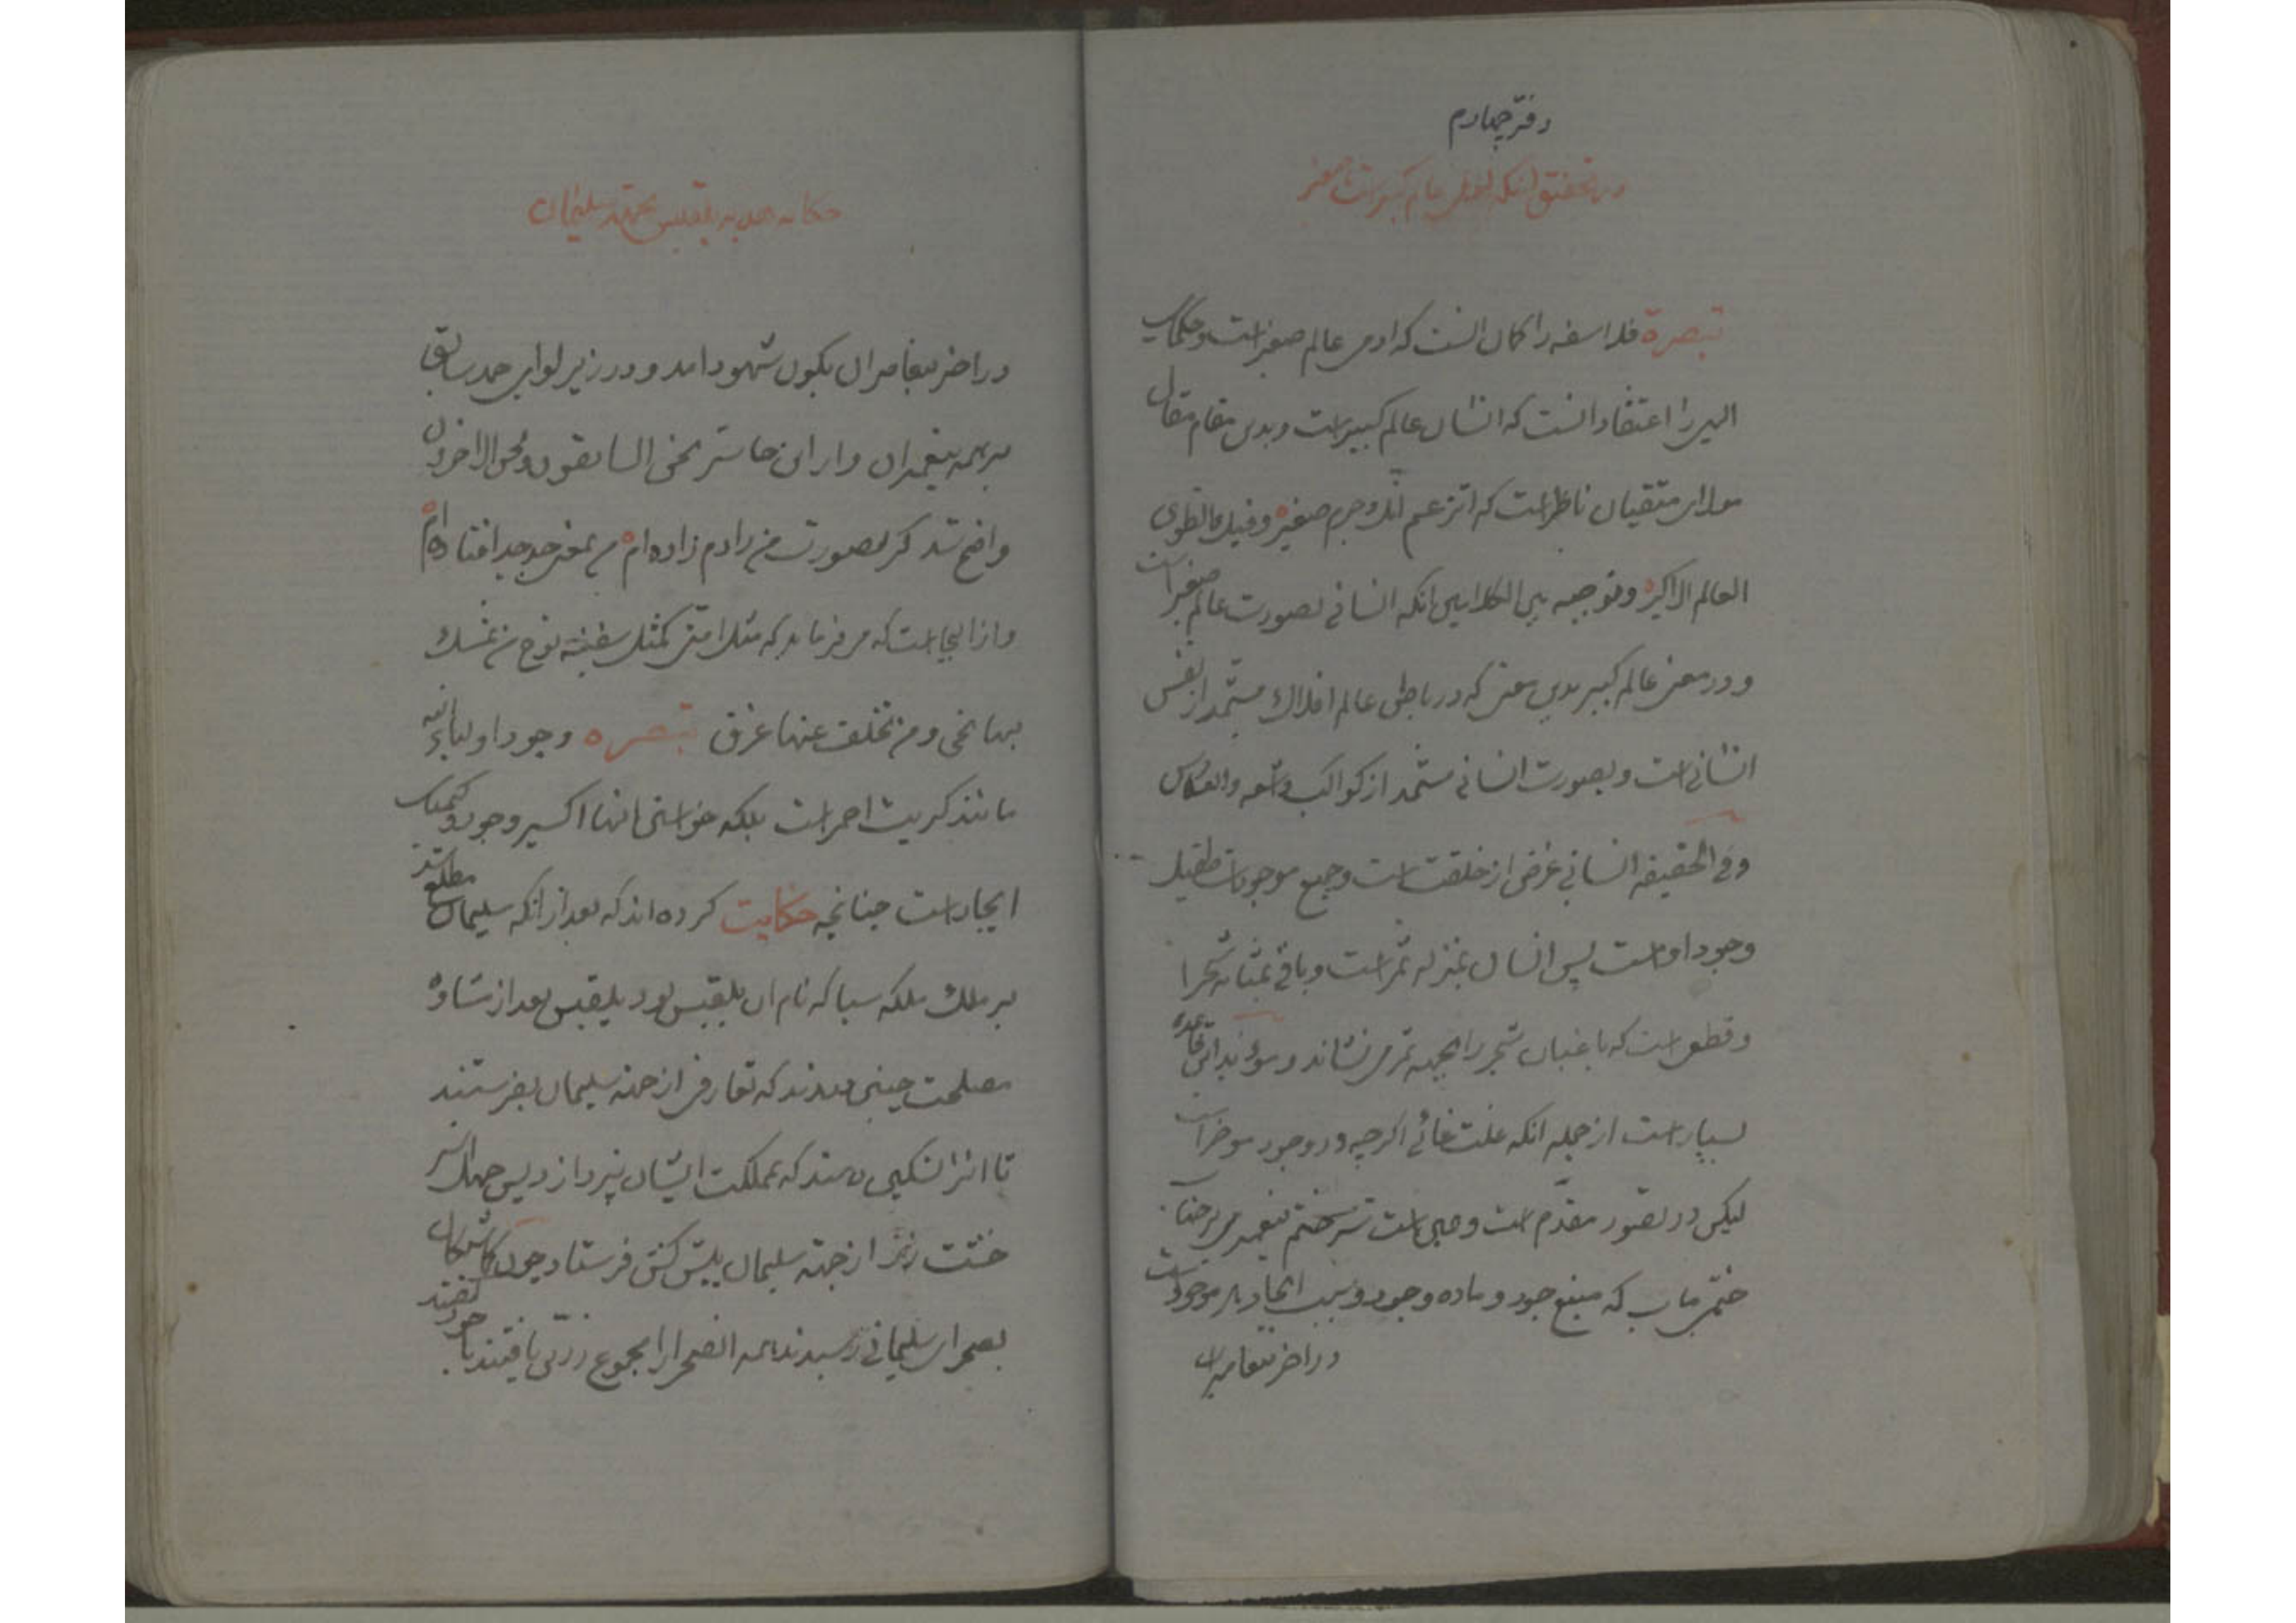 دفتر چهارم
در تحقیق انکه انسان عالم کبیر است بمعنی
تبصرة فلاسفه را کمان انست که ادمی عالم صغیر است و حکمای
الهی را اعتقاد انست که انسان عالم کبیر است و بدین مقام مقال
مولای متقیان ناظر است که اتزعم انک جرم صغیر ه و فیک انطوی
العالم الاکبر ه و توجیه بین الکلامین انکه انسانی بصورت عالم صغیر است
و در معنی عالم کبیر بدین معنی که در باطن عالم افلاک مستمد از نفس
انسانی است و بصورت انسانی مستمد از کواکب و اشعه و انعکاس
و فی الحقیقه انسانی غرض از خلقت است و جمیع موجودات طفیل
وجود او است پس انسان بمنزله ثمر است و باقی بمثابه شجر
و قطعی است که باغبان شجر را بجهه ثمر می نشاند و مؤید این قاعده
بسیار است از جمله انکه علت غائی اکر چه در وجود موخر است
لیکن در تصور مقدم است و همین است سر ختم پیغمبری بر جناب
ختمی ماب که منبع جود و ماده وجود و سبب ایجاد هر موجود است
در اخر پیغامبران
حکایه هدیه بلقیس بجهة سلیمان
در اخر پیغامبران بکون شهود امد و در زیر لوای حمد سابق
بر همه پیغمبران و از این جا سر نحن السابقون و نحن الاخرون
واضح شد کر بصورت من ز ادم زاده ام ه من بمعنی جد جد افتاده ام ه
و از اینجا است که می فرماید که مثل امتی کمثل سفینه نوح من تمسک
بها نجی و من تخلف عنها غرق تبصره وجود اولیاء الله
مانند کبریت احمر است بلکه خواستن انها اکسیر وجود و کیمیای
ایجاد است چنانچه حکایت کرده اند که بعد از انکه سلیمان مطلع شد
بر ملک ملکه سبا که نام ان بلقیس بود بلقیس بعد از مشاوره
مصلحت چنین دیدند که تعارفی از جهة سلیمان بفرستند
تا اثر تسکین دهند که بمملکت ایشان نپردازد پس چهل استر
خشت زر از جهة سلیمان پیش کش فرستاد چون کماشتکان
بصحرای سلیمانی رسیدند همه الصحرا را مجموع زرین یافتند با خود گفتند